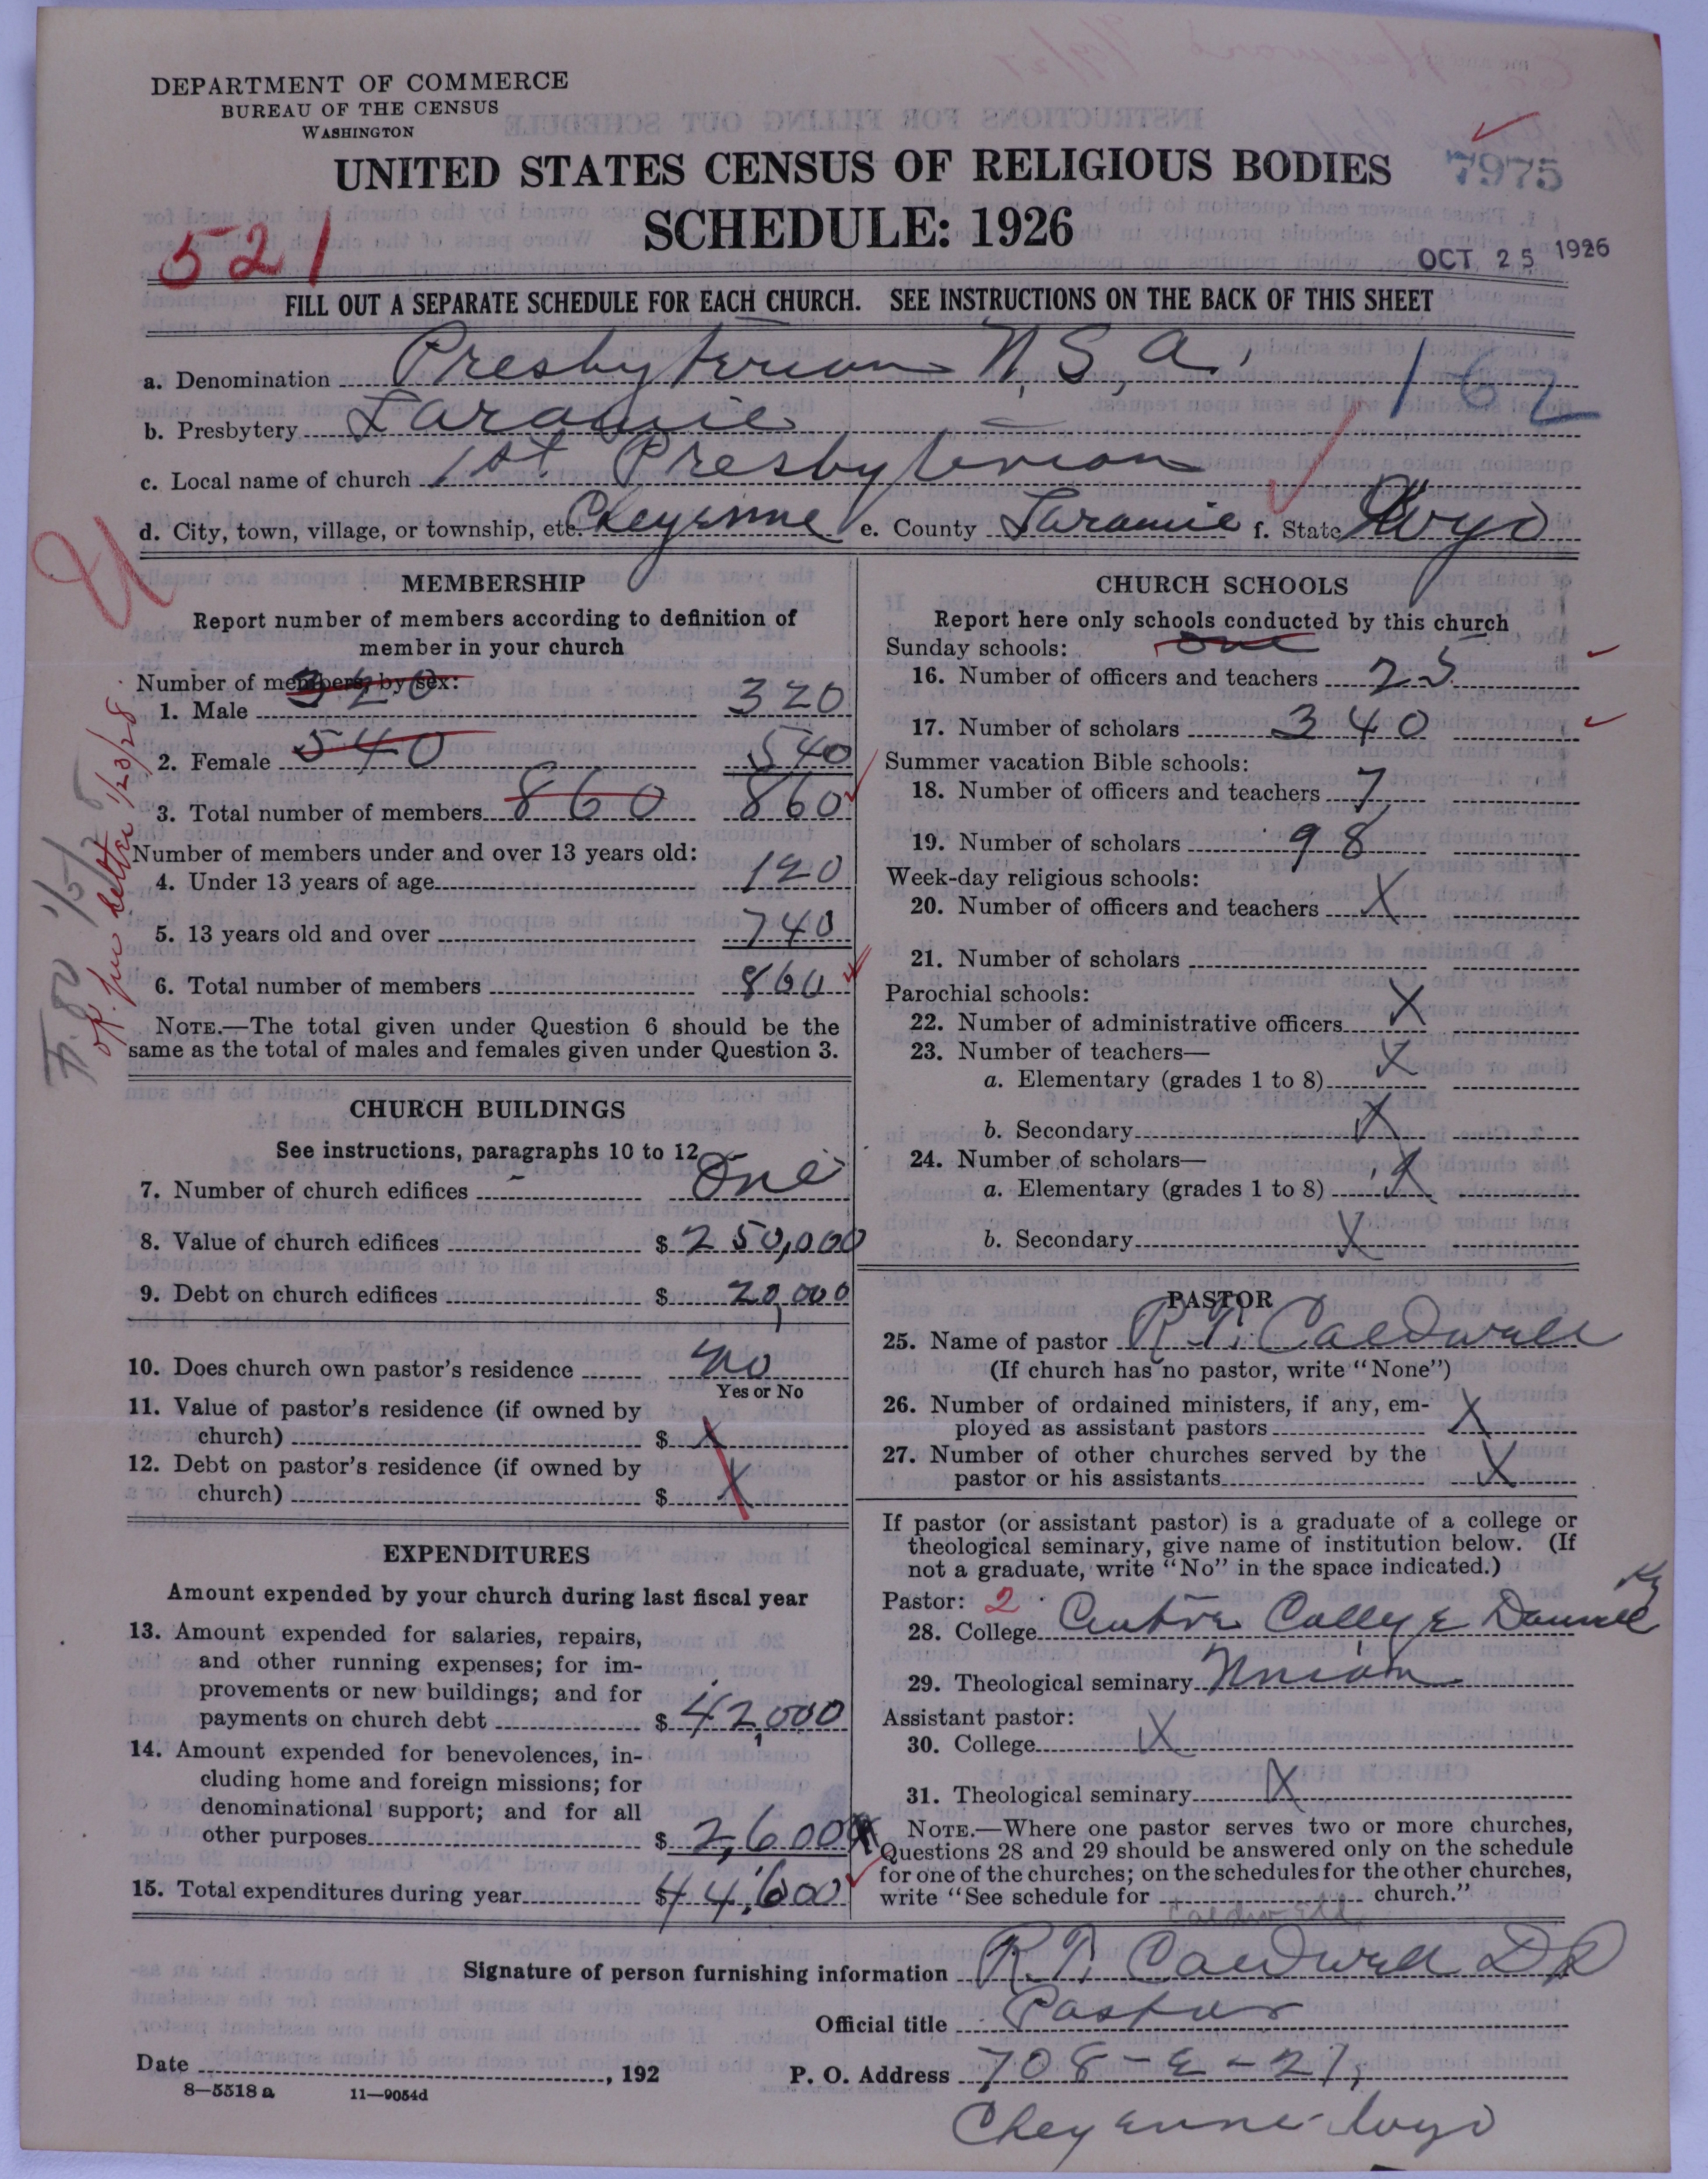 DEPARTMENT OF COMMERCE
BUREAU OF THE CENSUS
WASHINGTON
UNITED STATES CENSUS OF RELIGIOUS BODIES
7975
SCHEDULE: 1926
521
OCT 25 1926
FILL OUT A SEPARATE SCHEDULE FOR EACH CHURCH. SEE INSTRUCTIONS ON THE BACK OF THIS SHEET
a. Denomination Presbyterian U.S.A. 162
b. Presbytery Laramie
c. Local name of church 1st Presbyterian
d. City, town, village, or township, etc. Cheyenne e. County Laramie f. State Wyo
MEMBERSHIP
Report number of members according to definition of
member in your church
Number of members, by sex: 320
1. Male 320
2. Female 540 540
3. Total number of members 860 860
Number of members under and over 13 years old:
4. Under 13 years of age 120
5. 13 years old and over 740
6. Total number of members 860
NOTE.—The total given under Question 6 should be the
same as the total of males and females given under Question 3.
letter 1/23/28
CHURCH BUILDINGS
See instructions, paragraphs 10 to 12
7. Number of church edifices One
8. Value of church edifices $ 250,000
9. Debt on church edifices $ 20,000
10. Does church own pastor's residence no
Yes or No
11. Value of pastor's residence (if owned by
church) $ X
12. Debt on pastor's residence (if owned by
church) $ X
EXPENDITURES
Amount expended by your church during last fiscal year
13. Amount expended for salaries, repairs,
and other running expenses; for im-
provements or new buildings; and for
payments on church debt $ 42,000
14. Amount expended for benevolences, in-
cluding home and foreign missions; for
denominational support; and for all
other purposes $ 2,600
15. Total expenditures during year $ 44,600
CHURCH SCHOOLS
Report here only schools conducted by this church
Sunday schools: one
16. Number of officers and teachers 25
17. Number of scholars 340
Summer vacation Bible schools:
18. Number of officers and teachers 7
19. Number of scholars 98
Week-day religious schools:
20. Number of officers and teachers X
21. Number of scholars
Parochial schools:
22. Number of administrative officers X
23. Number of teachers—
a. Elementary (grades 1 to 8) X
b. Secondary X
24. Number of scholars—
a. Elementary (grades 1 to 8) X
b. Secondary X
PASTOR
25. Name of pastor R. T. Caldwell
(If church has no pastor, write "None")
26. Number of ordained ministers, if any, em-
ployed as assistant pastors X
27. Number of other churches served by the
pastor or his assistants X
If pastor (or assistant pastor) is a graduate of a college or
theological seminary, give name of institution below. (If
not a graduate, write "No" in the space indicated.)
Pastor: 2
28. College Centre College Danville Ky
29. Theological seminary Union
Assistant pastor:
30. College X
31. Theological seminary X
NOTE.—Where one pastor serves two or more churches,
Questions 28 and 29 should be answered only on the schedule
for one of the churches; on the schedules for the other churches,
write "See schedule for church."
Caldwell
Signature of person furnishing information R. T. Caldwell DD
Official title Pastor
Date , 192 P. O. Address 708-E-27,
8—5518 a 11—9054d
Cheyenne Wyo